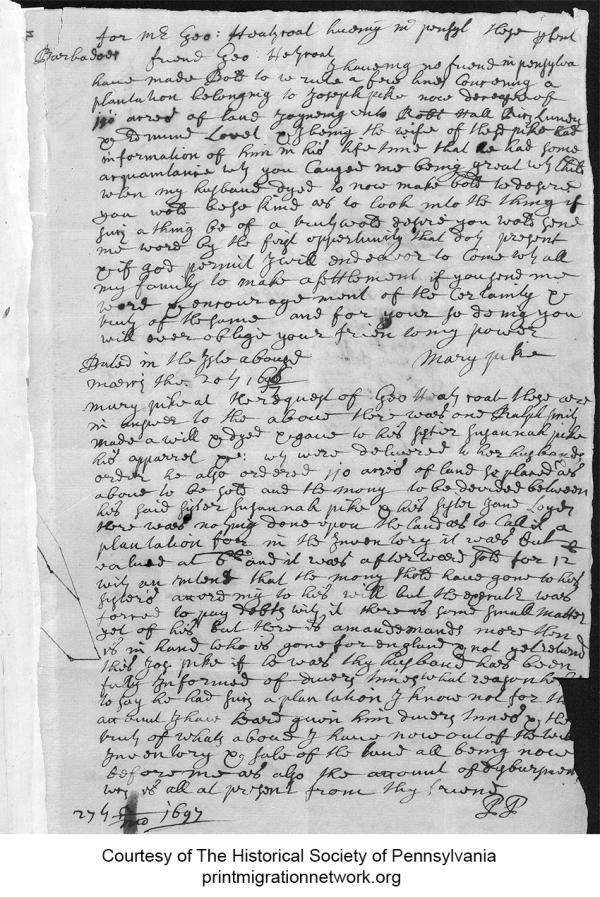 for Mr Geo: Heathcoat liveing in pensyl these psent
Barbadoes friend Geo Hetcoat
I haveing no friend in pensylva
have made Bold to write a few lines Concerning a
plantation belonging to Joseph pike now deceased off
110 acres of land Joyneing unto Robt Hall
& Edmund Lovel & I being the wife of the sd pike had
information of him in his life time that he had some
acquaintance wth you Caused me being great wth child
when my husband dyed to now make bold to desire
you wold be so kind as to look into the thing if
such a thing be of a truth wold desire you wold send
me word by the first opportunity that doth present
& if god permit I will endeavor to Come wth all
my family to make a settlement if you send me
word & encouragement of the Certainty &
truth of the same and for your so doing you
will ever oblige your friend to my power
Dated in the Isle aboved Mary pike
March the 20th 1696
mary pike at the request of Geo Heathcoat these are
in answer to the above there was one Ralph Smith
made a will & dyed & gave to his sister Susannah pike
his apparrel &c: wch were delivered to her husbands
order he also ordered 110 acres of land placed as
above to be sold and the mony to be devided between
his said sister Susannah pike & his sister Jane Loyd
there was nothing done upon the land as to Call it a
plantation for in the Inventory it was but
valued at 6 and it was afterward sold for 12
with an intent that the mony shold have gone to his
sisters according to his will but the execut was
forced to pay debts with it there is some small matter
yet of his but there is a mans demands more then
is in hand who is gone for england & not yet returnd
this Jos. pike if he was thy husband has been
fully Informed of divers times what reason he
to say he had such a plantation I know not for the
account I have Been given him divers times & the
truth of whats above I have now out of the will
Inventory & sale of the land all being now
before me as also the account of disbursmen
wch is all at present from thy friend
27th 1697 PP
Courtesy of The Historical Society of Pennsylvania
printmigrationnetwork.org